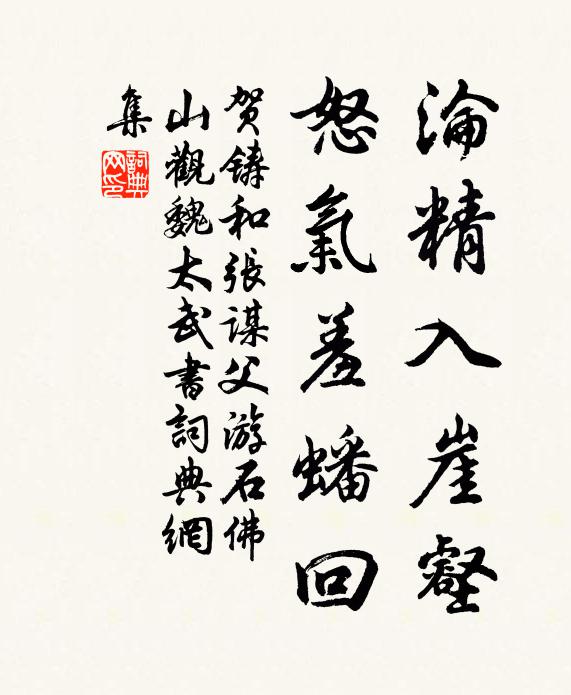 淪精入崖壑
怒氣羞蟠回
贺铸和張謀父游石佛
山觀魏太武書詞典網
集
詞典網印